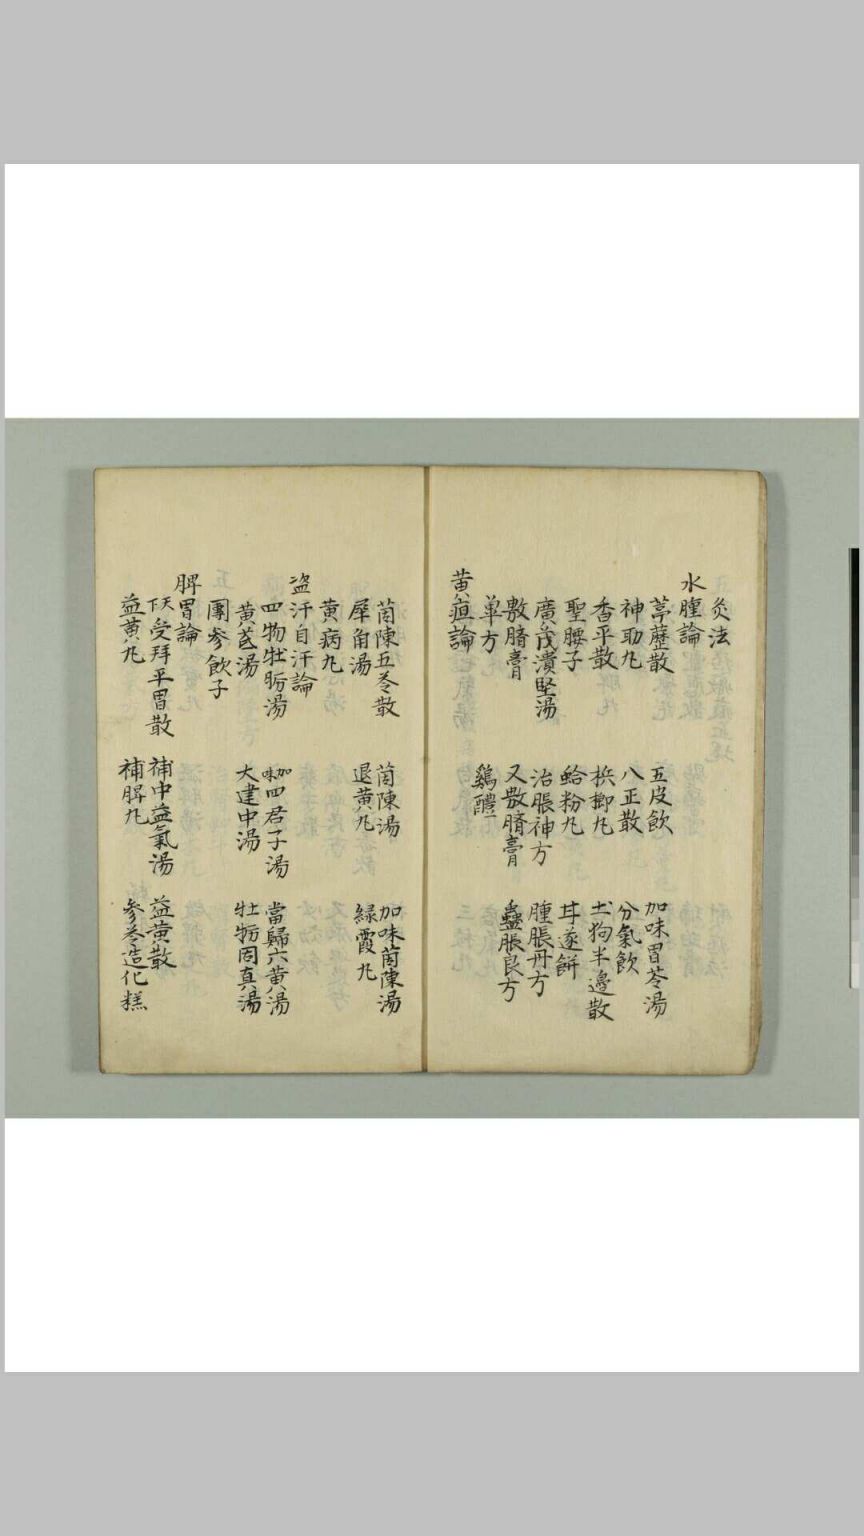 灸法
水腫論
葶藶散 五皮飲 加味胃苓湯
神助丸 八正散 分氣飲
香平散 梹榔丸 土狗半邊散
聖腰子 蛤粉丸 甘遂餅
廣茂潰堅湯 治脹神方 腫脹丹方
敷臍膏 又敷臍膏 蠱脹良方
单方 鷄醴
黄疸論
茵陳五苓散 茵陳湯 加味茵陳湯
犀角湯 退黄丸 緑霞丸
黄病丸
盗汗自汗論
四物牡蛎湯 加味四君子湯 當歸六黄湯
黄芪湯 大建中湯 牡蛎固真湯
團参飲子
脾胃論
天受拜平胃散 補中益氣湯 益黄散
益黄丸 補脾丸 参苓造化糕